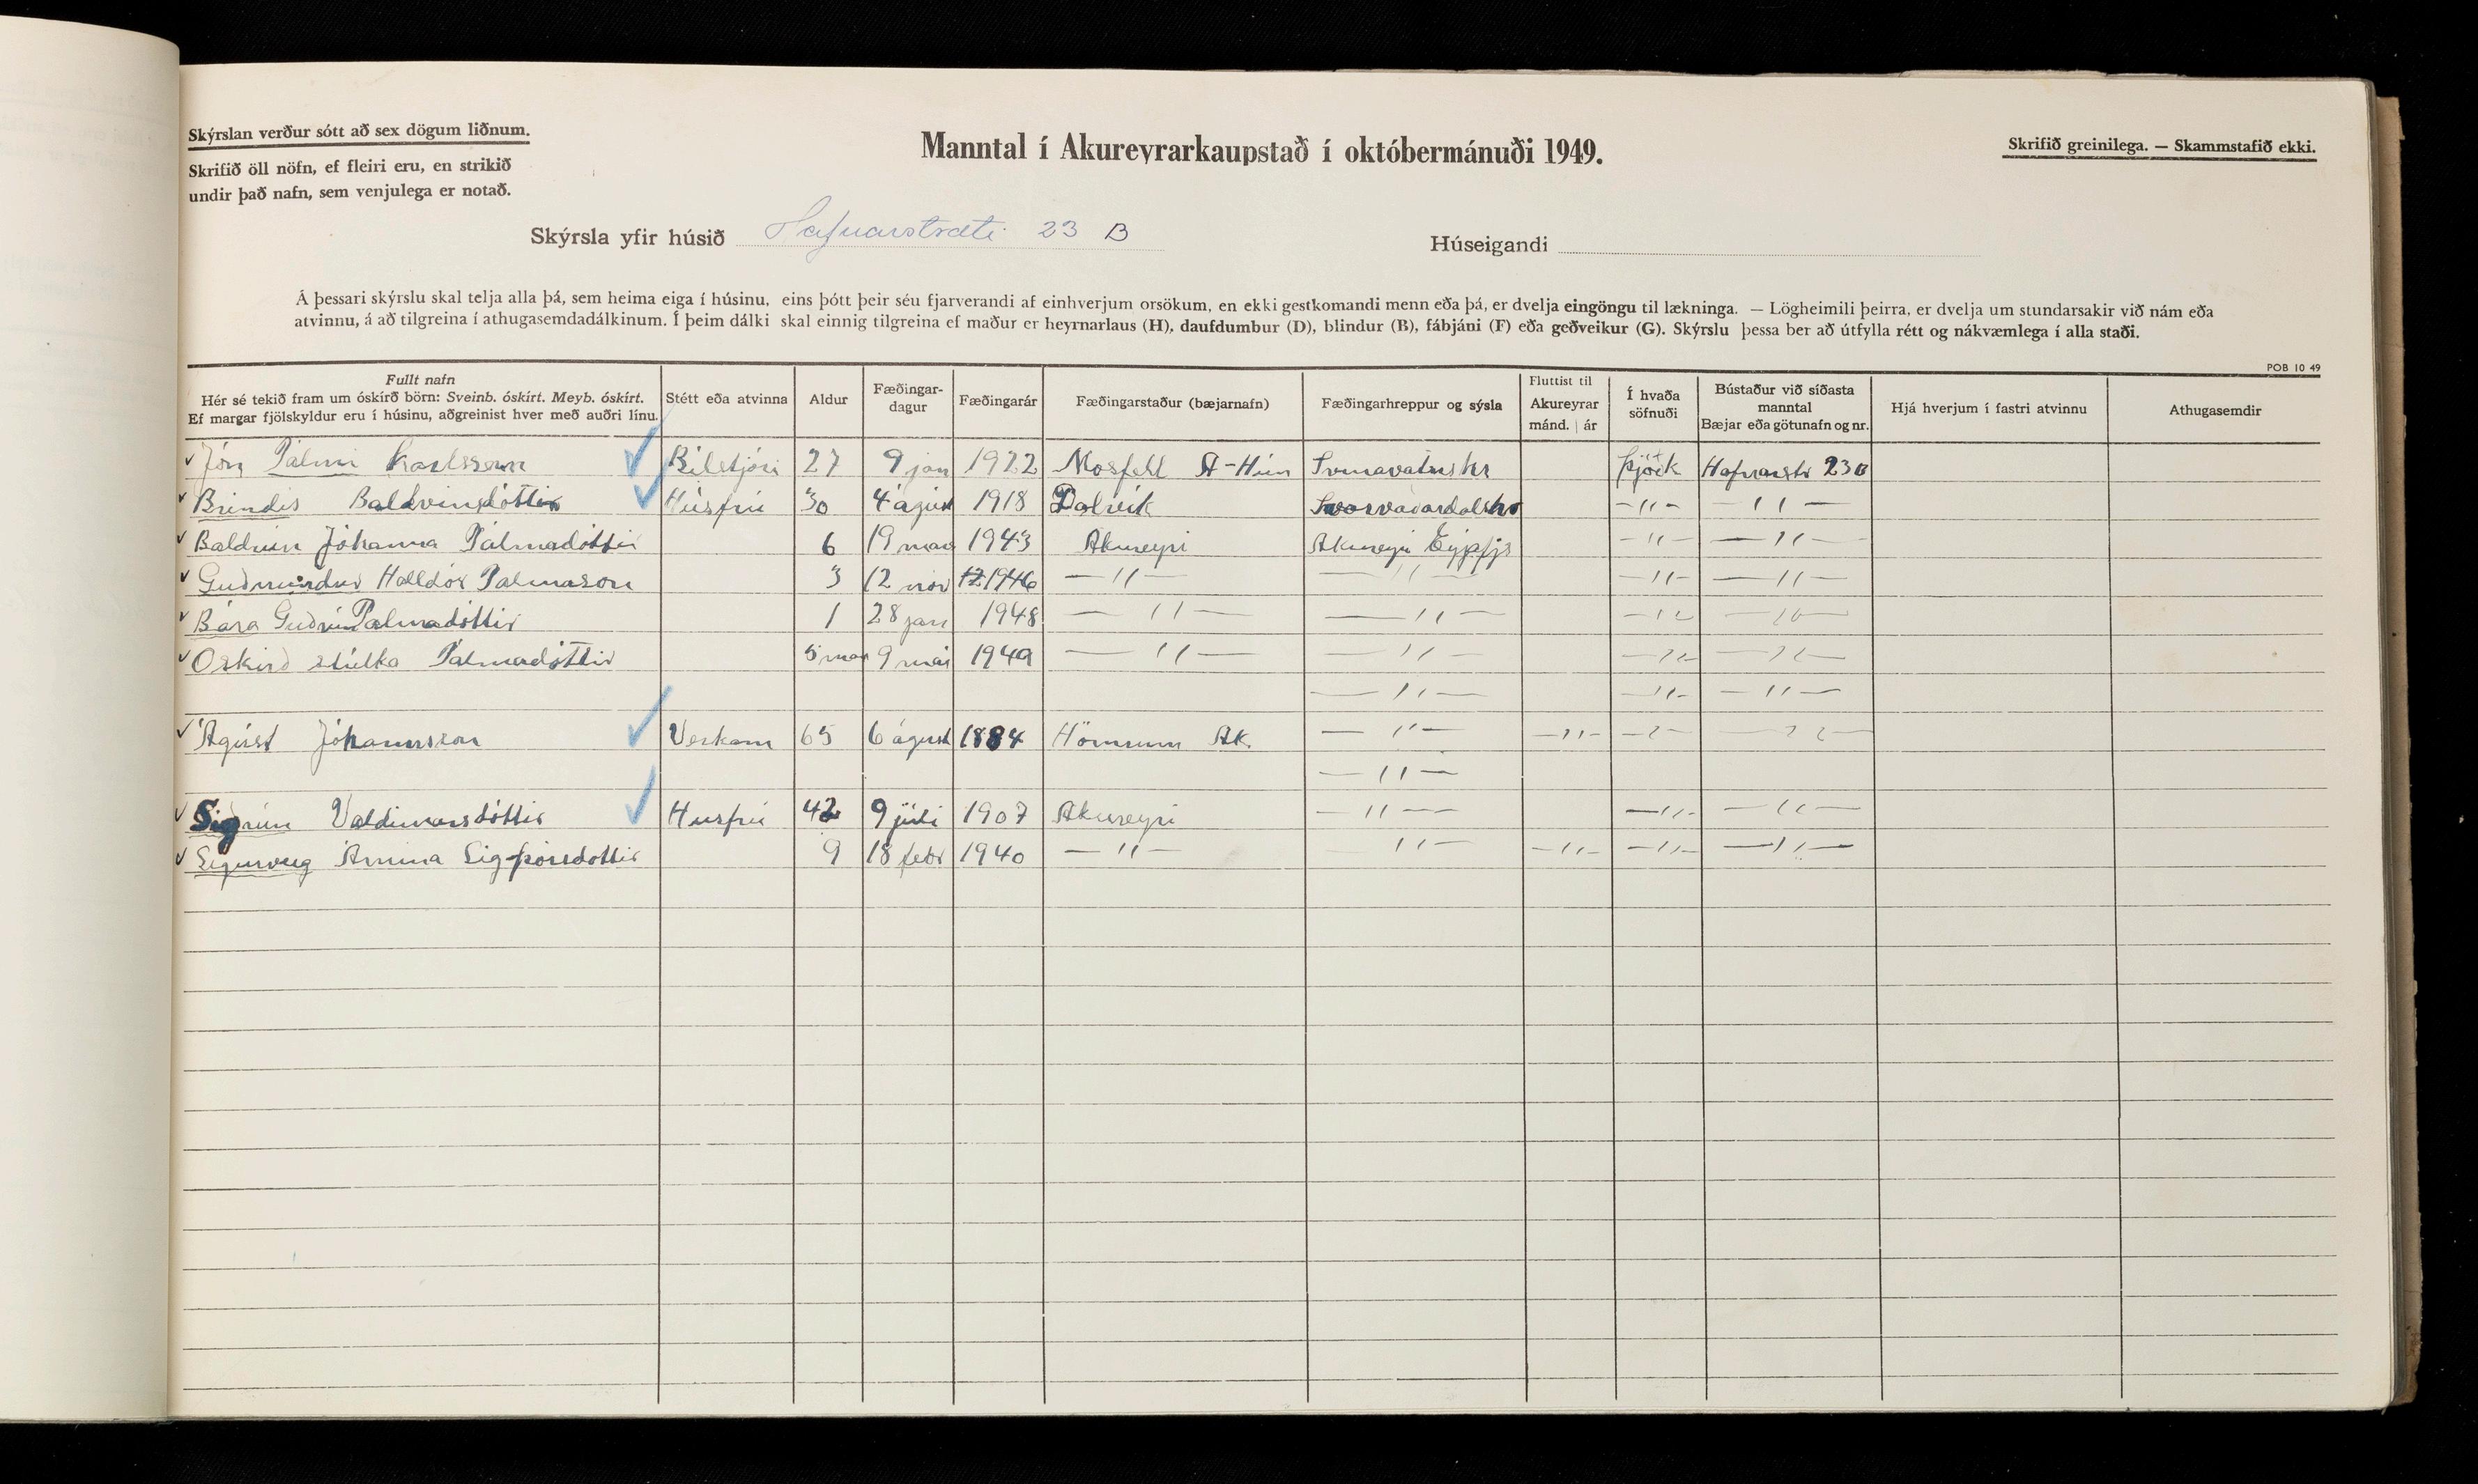 Skýrslan verður sótt að sex dögum liðnum.
Skrifið öll nöfn, ef fleiri eru, en strikið
undir það nafn, sem venjulega er notað.
Manntal í Akureyrarkaupstað í októbermánuði 1949.
Skrifið greinilega. — Skammstafið ekki.
Skýrsla yfir húsið Hafnarstræti 23 B
Húseigandi
Á þessari skýrslu skal telja alla þá, sem heima eiga í húsinu, eins þótt þeir séu fjarverandi af einhverjum orsökum, en ekki gestkomandi menn eða þá, er dvelja eingöngu til lækninga. — Lögheimili þeirra, er dvelja um stundarsakir við nám eða
atvinnu, á að tilgreina í athugasemdadálkinum. Í þeim dálki skal einnig tilgreina ef maður er heyrnarlaus (H), daufdumbur (D), blindur (B), fábjáni (F) eða geðveikur (G). Skýrslu þessa ber að útfylla rétt og nákvæmlega í alla staði.
POB 10 49
Fullt nafn
Hér sé tekið fram um óskírð börn: Sveinb. óskírt. Meyb. óskírt.
Ef margar fjölskyldur eru í húsinu, aðgreinist hver með auðri línu.
Stétt eða atvinna
Aldur
Fæðingar-
dagur
Fæðingarár
Fæðingarstaður (bæjarnafn)
Fæðingarhreppur og sýsla
Fluttist til
Akureyrar
mánd. | ár
Í hvaða
söfnuði
Bústaður við síðasta
manntal
Bæjar eða götunafn og nr.
Hjá hverjum í fastri atvinnu
Athugasemdir
Jón Pálmi Karlsson Bílstjóri 27 9 jan 1922 Mosfell A-Hún Svínavatnshr Þjóðk Hafnarstr 23B
Brindís Baldvinsdóttir Húsfrú 30 4 ágúst 1918 Dalvík Svarvaðardalshr -〃- -〃-
Baldvin Jóhanna Pálmadóttir 6 19 mar 1943 Akureyri Akureyri Eyjafjs -〃- -〃-
Guðmundur Halldór Pálmason 3 12 nóv 1946 -〃- -〃- -〃- -〃-
Bára Guðrún Pálmadóttir 1 28 jan 1948 -〃- -〃- -〃- -〃-
Óskírð stúlka Pálmadóttir 5 mán 9 maí 1949 -〃- -〃- -〃- -〃-
-〃- -〃- -〃-
Ágúst Jóhannsson Verkam 65 6 ágúst 1884 Ak. -〃- -〃- -〃- -〃-
-〃-
Sigrún Valdimarsdóttir Húsfrú 42 9 júlí 1907 Akureyri -〃- -〃- -〃-
Sigurveig Armina Sigþórsdóttir 9 18 febr 1940 -〃- -〃- -〃- -〃- -〃-